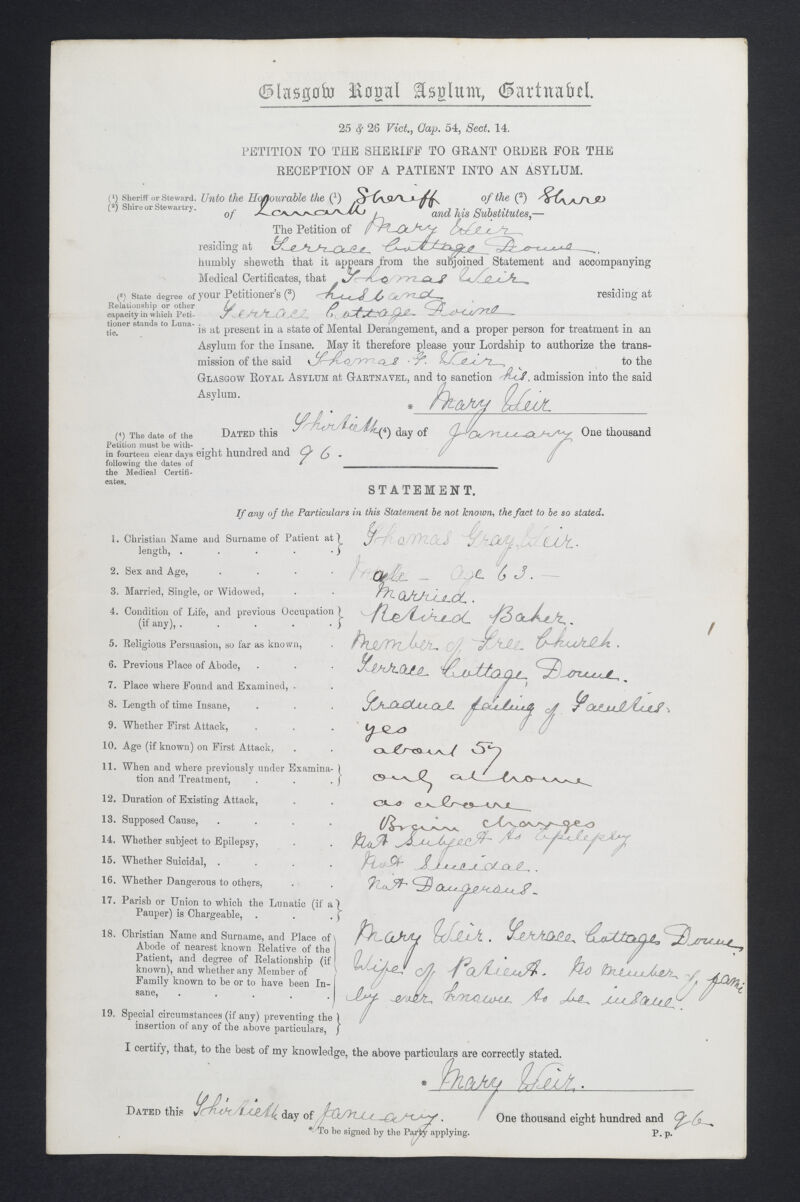 Glasgow Royal Asylum, Gartnavel.
25 & 26 Vict., Cap. 54, Sect. 14.
PETITION TO THE SHERIFF TO GRANT ORDER FOR THE
RECEPTION OF A PATIENT INTO AN ASYLUM.
(1) Sheriff or Steward. Unto the Honourable the (1) Sheriff of the (2) Shire
(2) Shire or Stewartry. of Lanark and his Substitutes,—
The Petition of Mary Weir
residing at Terrace Cottage Doune,
humbly sheweth that it appears from the subjoined Statement and accompanying
Medical Certificates, that Thomas Weir
(3) State degree of Relationship or other capacity in which Petitioner stands to Lunatic.
your Petitioner's (3) husband residing at
Terrace Cottage Doune
is at present in a state of Mental Derangement, and a proper person for treatment in an
Asylum for the Insane. May it therefore please your Lordship to authorize the trans-
mission of the said Thomas G. Weir to the
GLASGOW ROYAL ASYLUM at GARTNAVEL, and to sanction his admission into the said
Asylum.
* Mary Weir
(4) The date of the Petition must be within fourteen clear days following the dates of the Medical Certificates.
DATED this Thirtieth (4) day of January One thousand
eight hundred and 96.
STATEMENT.
If any of the Particulars in this Statement be not known, the fact to be so stated.
1. Christian Name and Surname of Patient at
length, . . . . . Thomas Gray Weir.
2. Sex and Age, . . . . Male – Age 63. –
3. Married, Single, or Widowed, . . Married.
4. Condition of Life, and previous Occupation
(if any), . . . . . Retired Baker.
5. Religious Persuasion, so far as known, . Member of Free Church.
6. Previous Place of Abode, . . . Terrace Cottage, Doune.
7. Place where Found and Examined, . .
8. Length of time Insane, . . . Gradual failing of Faculties.
9. Whether First Attack, . . . yes
10. Age (if known) on First Attack, . . about 57
11. When and where previously under Examina-
tion and Treatment, . . . only at home
12. Duration of Existing Attack, . . as above
13. Supposed Cause, . . . . Brain changes
14. Whether subject to Epilepsy, . . Not Subject to Epilepsy
15. Whether Suicidal, . . . . Not Suicidal.
16. Whether Dangerous to others, . . Not Dangerous.
17. Parish or Union to which the Lunatic (if a
Pauper) is Chargeable, . . .
18. Christian Name and Surname, and Place of
Abode of nearest known Relative of the Mary Weir. Terrace Cottages Doune.
Patient, and degree of Relationship (if
known), and whether any Member of Wife of Patient. No member of fami
Family known to be or to have been In-
sane, . . . . . ly ever known to be insane.
19. Special circumstances (if any) preventing the
insertion of any of the above particulars,
I certify, that, to the best of my knowledge, the above particulars are correctly stated.
* Mary Weir.
DATED this Thirtieth day of January. One thousand eight hundred and 96
* To be signed by the Party applying. P. p.